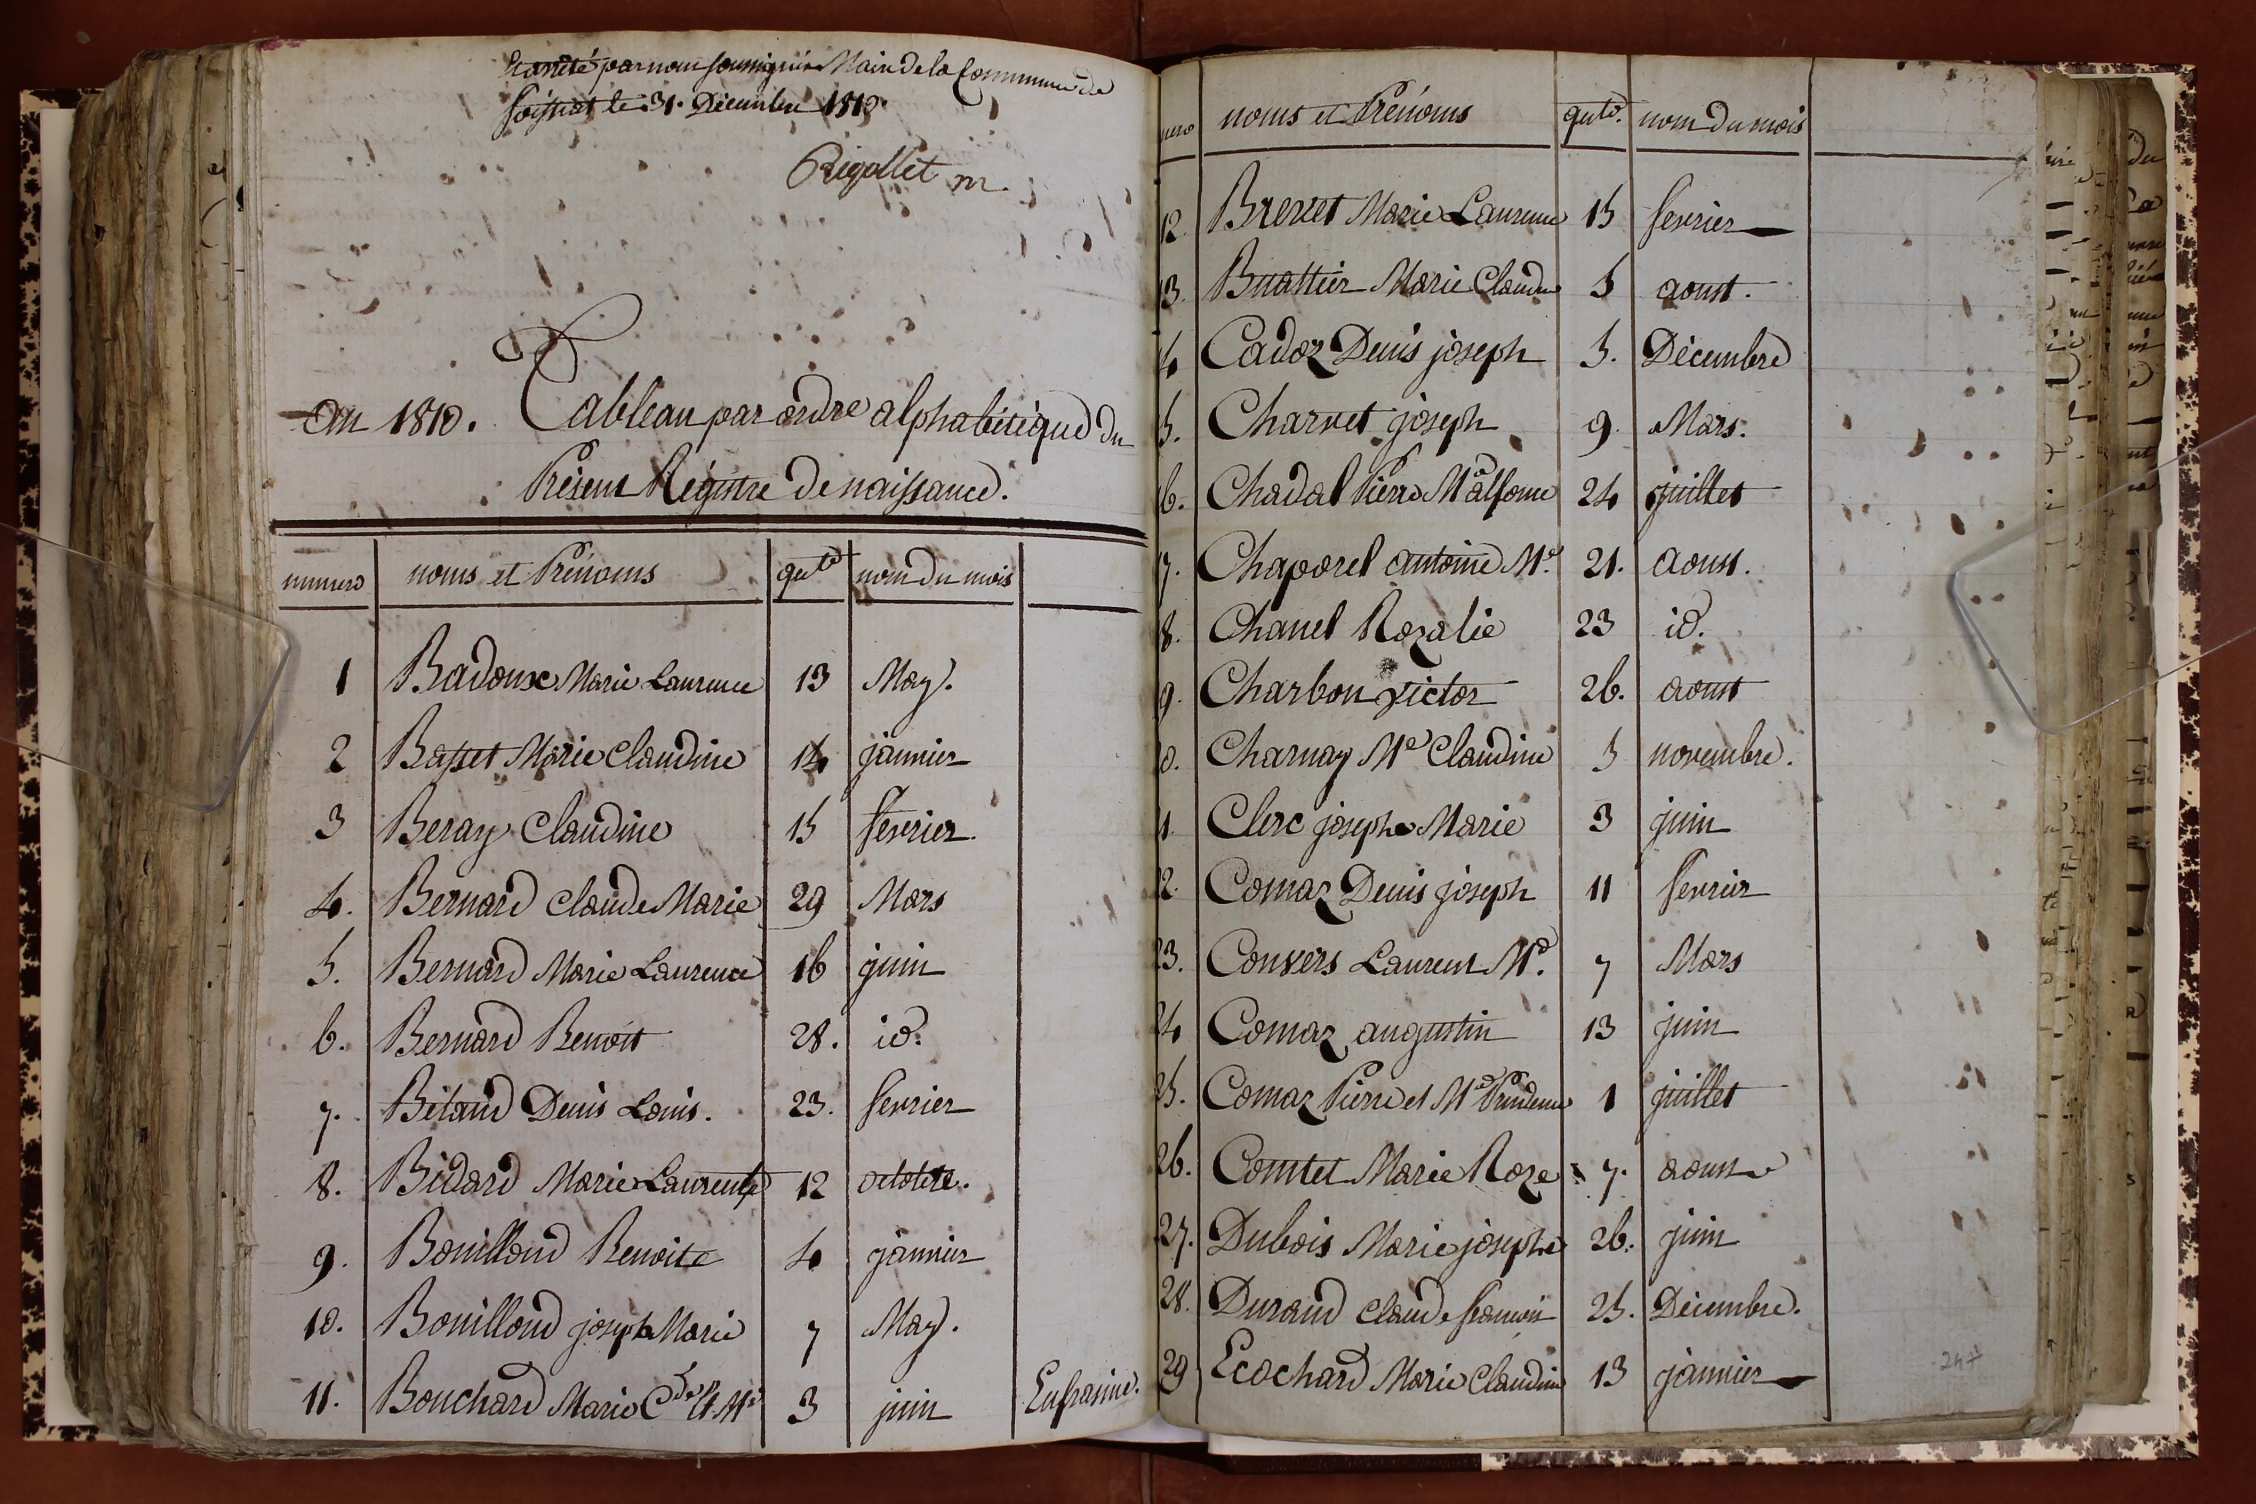 et arrêté par nous soussigné Maire de la Commune de
le 31. Décembre 1810.
Rigollet m.
an 1810. Tableau par ordre alphabétique du
Présent Régistre de naissance.
numero noms et Prénoms qute nom du mois
1 Badoux Marie Laurence 13 May.
2 Basset Marie Claudine 14 janvier
3 Beray Claudine 15 fevrier.
4. Bernard Claude Marie 29 Mars
5. Bernard Marie Laurence 16 juin
6. Bernard Benoit 28. id.
7. Bétaud Denis Louis. 23. fevrier
8. Bidard Marie Laurence 12 octobre.
9. Bouilloud Benoite 4 janvier
10. Bouilloud joseph Marie 7 May.
11. Bouchard Marie Cde et Me 3 juin Eufrasine.
mero noms et Prénoms qute. nom du mois
12. Brevet Marie Laurence 15 fevrier
13. Buattier Marie Claudine 5 aoust.
4 Cadoz Denis joseph 5. Décembre
5. Charvet joseph 9. Mars.
16. Chadal Pierre Me alfonse 24 juillet
7. Chaporel antoine Me. 21. aoust.
8. Chanel Rozalie 23 id.
9. Charbon victor 26. aoust
0. Charnay Me Claudine 5 novembre.
1. Clerc josephe Marie 3 juin
2. Comaz Denis joseph 11 fevrier
23. Convers Laurent Me. 7 Mars
24 Comaz augustin 13 juin
25. Comaz Pierre et Me Prudence 1 juillet
26. Comtet Marie Roze 7. aoust
27. Dubois Marie josephe 26. juin
28. Durand Claude francois 25. Décembre.
29 Ecochard Marie Claudine 13 janvier